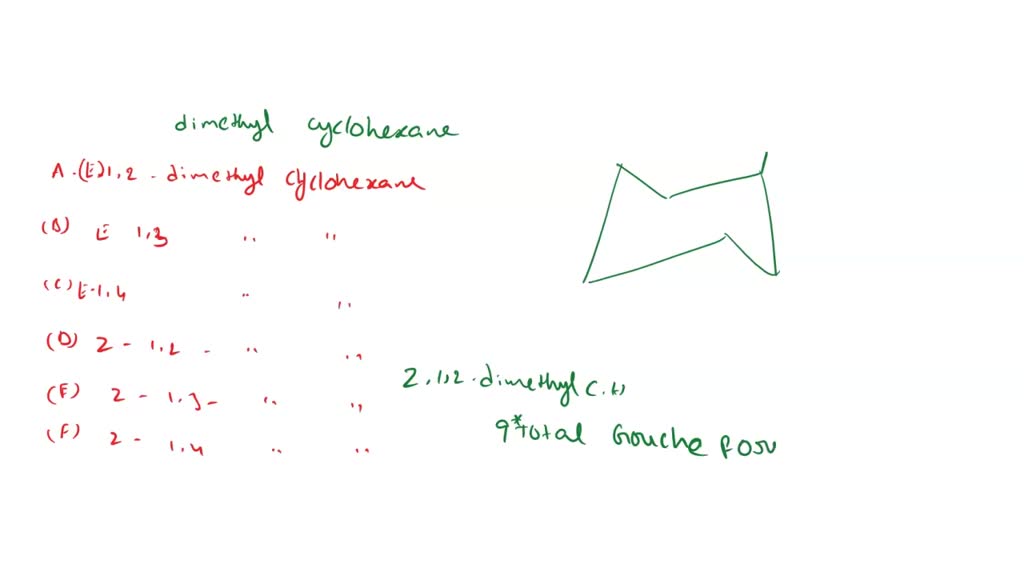 dimethyl cyclohexane
A. (E) 1,2 - dimethyl cyclohexane
(B) E 1,3 " "
(C) E-1,4 " "
(D) 2 - 1,2 - " "
(E) 2 - 1,3 - " "
(F) 2 - 1,4 " "
2,1,2-dimethyl C.H
9* Total Gouche